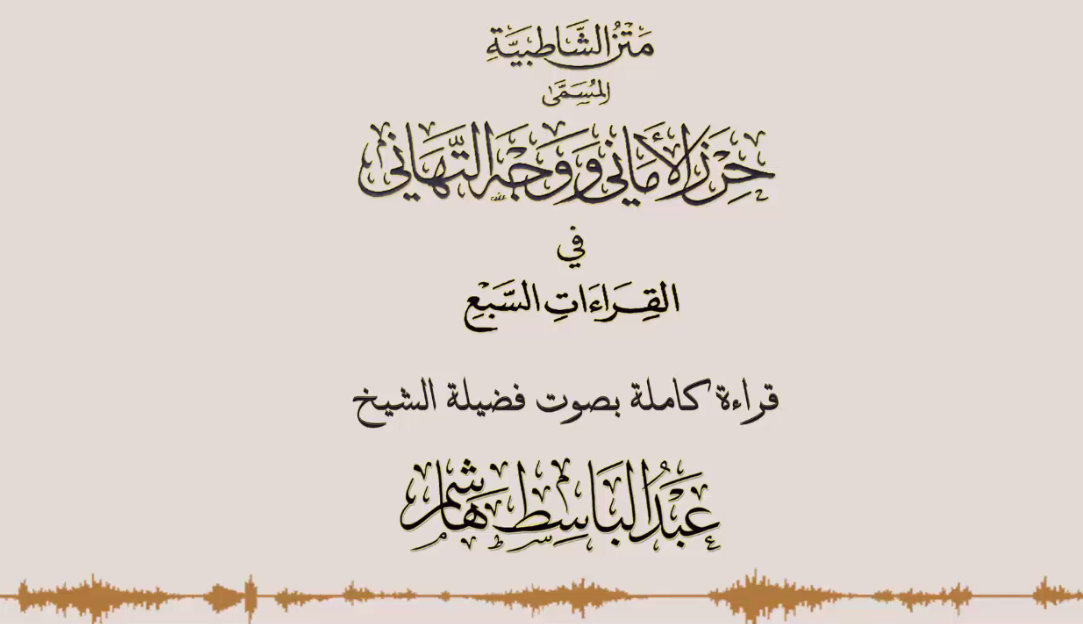 مَتْنُ الشَّاطِبِيَّةِ
المُسَمَّى
حِرْزُ الأَمَانِي وَوَجْهُ التَّهَانِي
في
القِرَاءَاتِ السَّبْعِ
قراءة كاملة بصوت فضيلة الشيخ
عَبْدُ البَاسِط هَاشِم